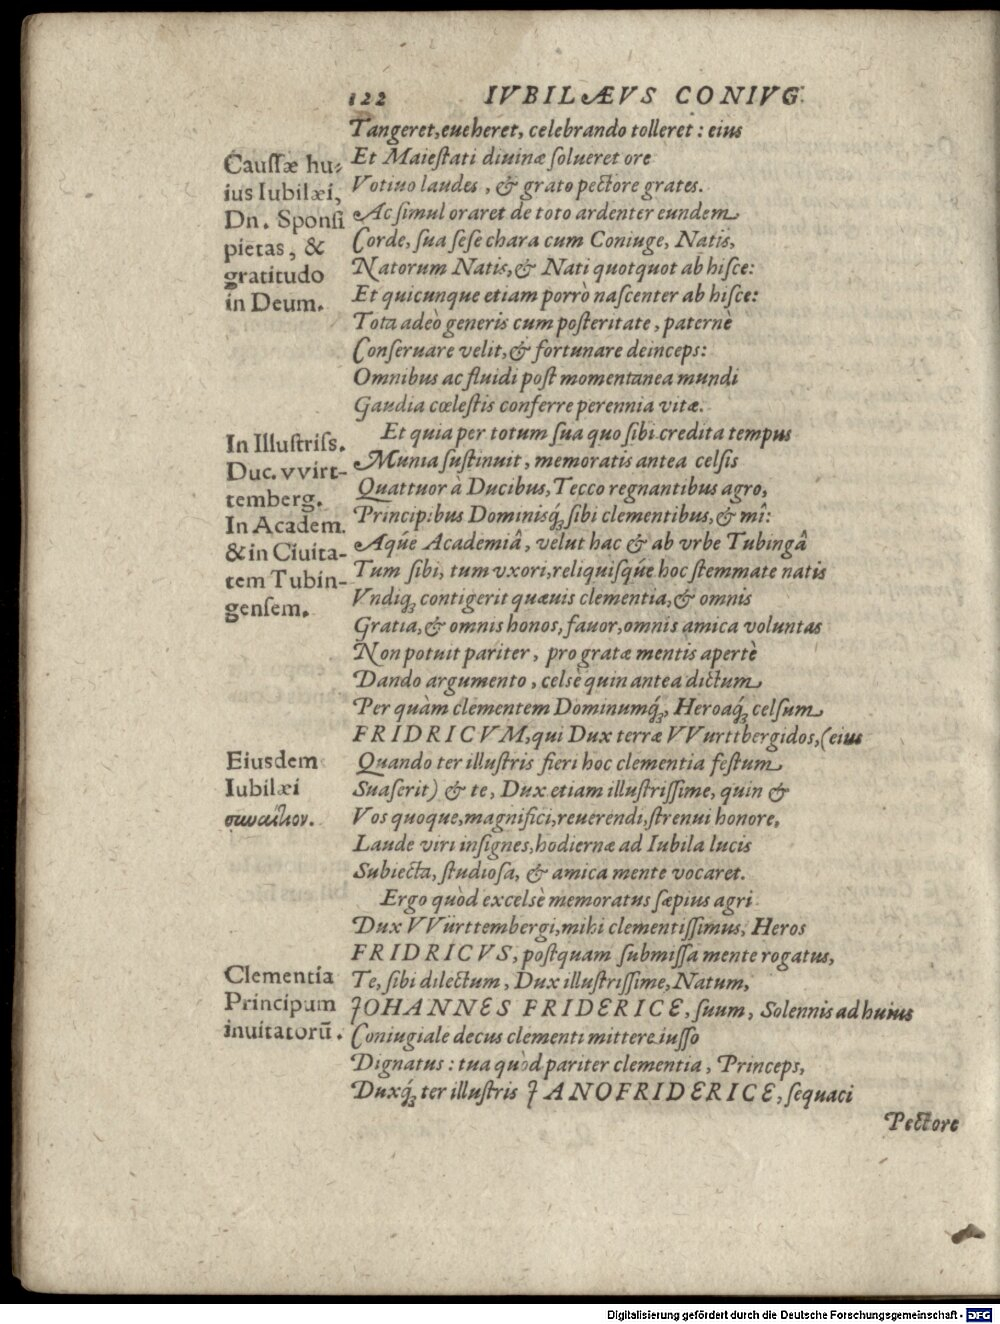 122 IVBILÆVS CONIVG.
Tangeret, eueheret, celebrando tolleret: eius
Et Maiestati diuinæ solueret ore
Votiuo laudes, & grato pectore grates.
Ac simul oraret de toto ardenter eundem
Corde, sua sese chara cum Coniuge, Natis,
Natorum Natis, & Nati quotquot ab hisce:
Et quicunque etiam porrò nascenter ab hisce:
Tota adeò generis cum posteritate, paternè
Conseruare velit, & fortunare deinceps:
Omnibus ac fluidi post momentanea mundi
Gaudia cœlestis conferre perennia vitæ.
Caussæ hu-
ius Iubilæi,
Dn. Sponsi
pietas, &
gratitudo
in Deum.
Et quia per totum sua quo sibi credita tempus
Munia sustinuit, memoratis antea celsis
Quattuor à Ducibus, Tecco regnantibus agro,
Principibus Dominisq́; sibi clementibus, & mî:
Aqúe Academiâ, velut hac & ab vrbe Tubingâ
Tum sibi, tum vxori, reliquisqúe hoc stemmate natis
Vndiq; contigerit quæuis clementia, & omnis
Gratia, & omnis honos, fauor, omnis amica voluntas
Non potuit pariter, pro gratæ mentis apertè
Dando argumento, celsè quin antea dictum
Per quàm clementem Dominumq́;, Heroaq́; celsum
FRIDRICVM, qui Dux terræ VVurttbergidos, (eius
Quando ter illustris fieri hoc clementia festum
Suaserit) & te, Dux etiam illustrissime, quin &
Vos quoque, magnifici, reuerendi, strenui honore,
Laude viri insignes, hodiernæ ad Iubila lucis
Subiecta, studiosa, & amica mente vocaret.
In Illustriss.
Duc. vvirt-
temberg.
In Academ.
& in Ciuita-
tem Tubin-
gensem.
Eiusdem
Iubilæi
συναίτιον.
Ergo quòd excelsè memoratus sæpius agri
Dux VVürttembergi, mihi clementissimus, Heros
FRIDRICVS, postquam submissa mente rogatus,
Te, sibi dilectum, Dux illustrissime, Natum,
JOHANNES FRIDERICE, suum, Solennis ad huius
Coniugiale decus clementi mittere iusso
Dignatus: tua quòd pariter clementia, Princeps,
Duxq́; ter illustris JANOFRIDERICE, sequaci
Clementia
Principum
inuitatorū.
Pectore
Digitalisierung gefördert durch die Deutsche Forschungsgemeinschaft - DFG